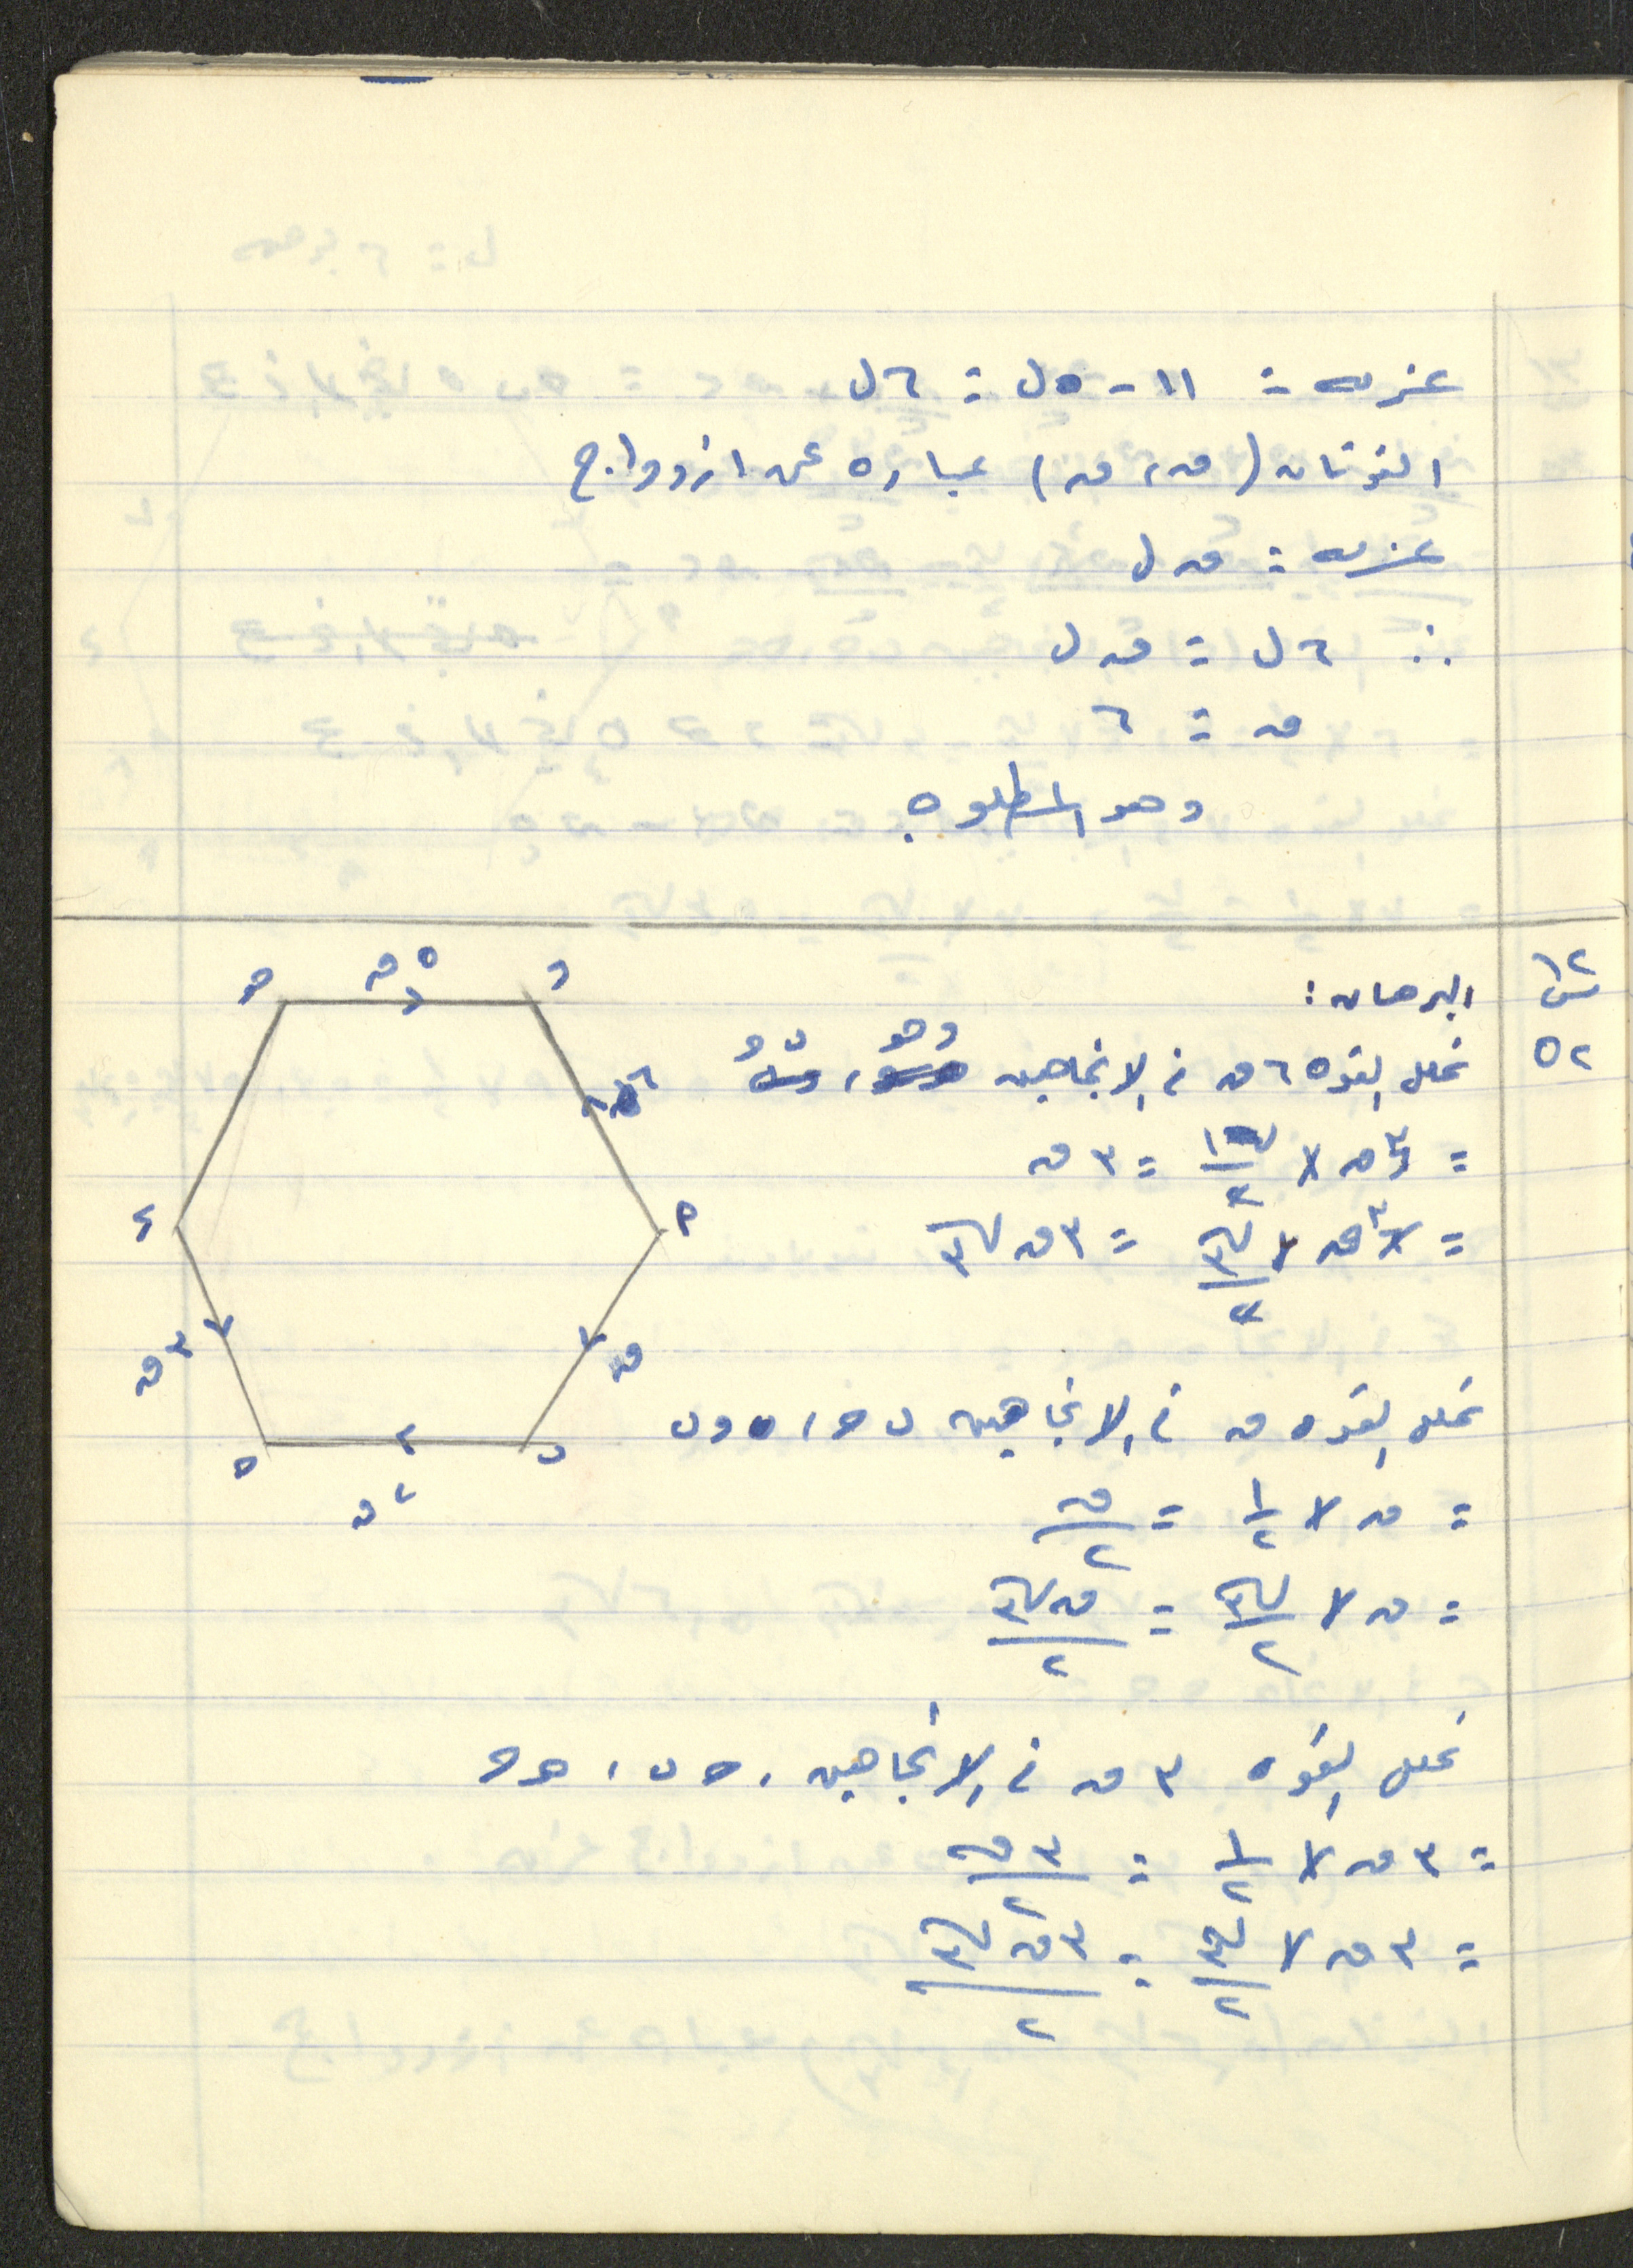 عزمه = ١١ - ٥ل = ٦ل
القوتان (ق، ق) عباره عن ازدواج
عزمه = ق ل
∴ ٦ل = ق ل
ق = ٦
وهو المطلوب
س١٢
٥٢
البرهان :
نحلل القوه ٦ق في الاتجاهين
= ٦ق × ١/٢ = ٣ق
= ٦ق × √٣/٢ = ٣ق√٣
نحلل القوه ق في الاتجاهين
= ق × ١/٢ = ق/٢
= ق × √٣/٢ = ق√٣/٢
نحلل القوه ٣ق في الاتجاهين
= ٣ق × ١/٢ = ٣ق/٢
= ٣ق × √٣/٢ = ٣ق√٣/٢
هـ
٥ق
و
٦
٢
ء
٣ق
ق
ب
٢ق